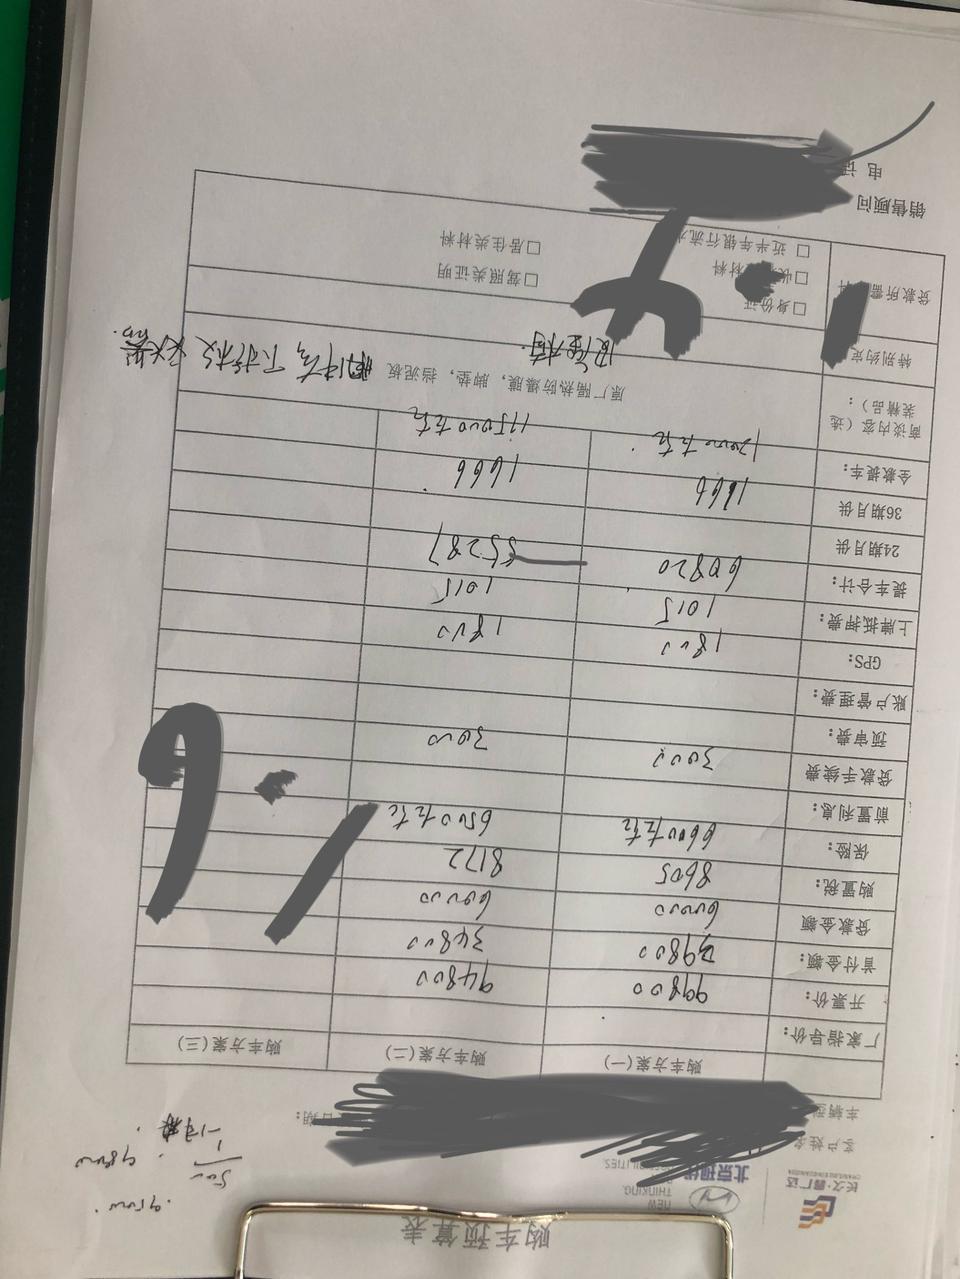 购车预算表
长久·鑫广达
NEW
THINKING.
北京现代
客户姓名
车辆型 日期:
购车方案(一) 购车方案(二) 购车方案(三)
厂家指导价:
开票价: 99800 94800
首付金额: 39800 34800
贷款金额 60000 60000
购置税: 8605 8172
保险: 6600左右 6500左右
前置利息:
贷款手续费 3000 3000
预审费:
账户管理费:
GPS: 1800 1800
上牌抵押费: 1015 1015
提车合计: 60820 55287
24期月供
36期月供 1666 1666
全款提车: 120000左右 115000左右
商谈内容(选装精品):
原厂隔热防爆膜,脚垫,挡泥板
特别约定
贷款所需
□身份证 □驾照类证明
□收 材料 □居住类材料
□近半年银行流水
销售顾问
电话
9.1